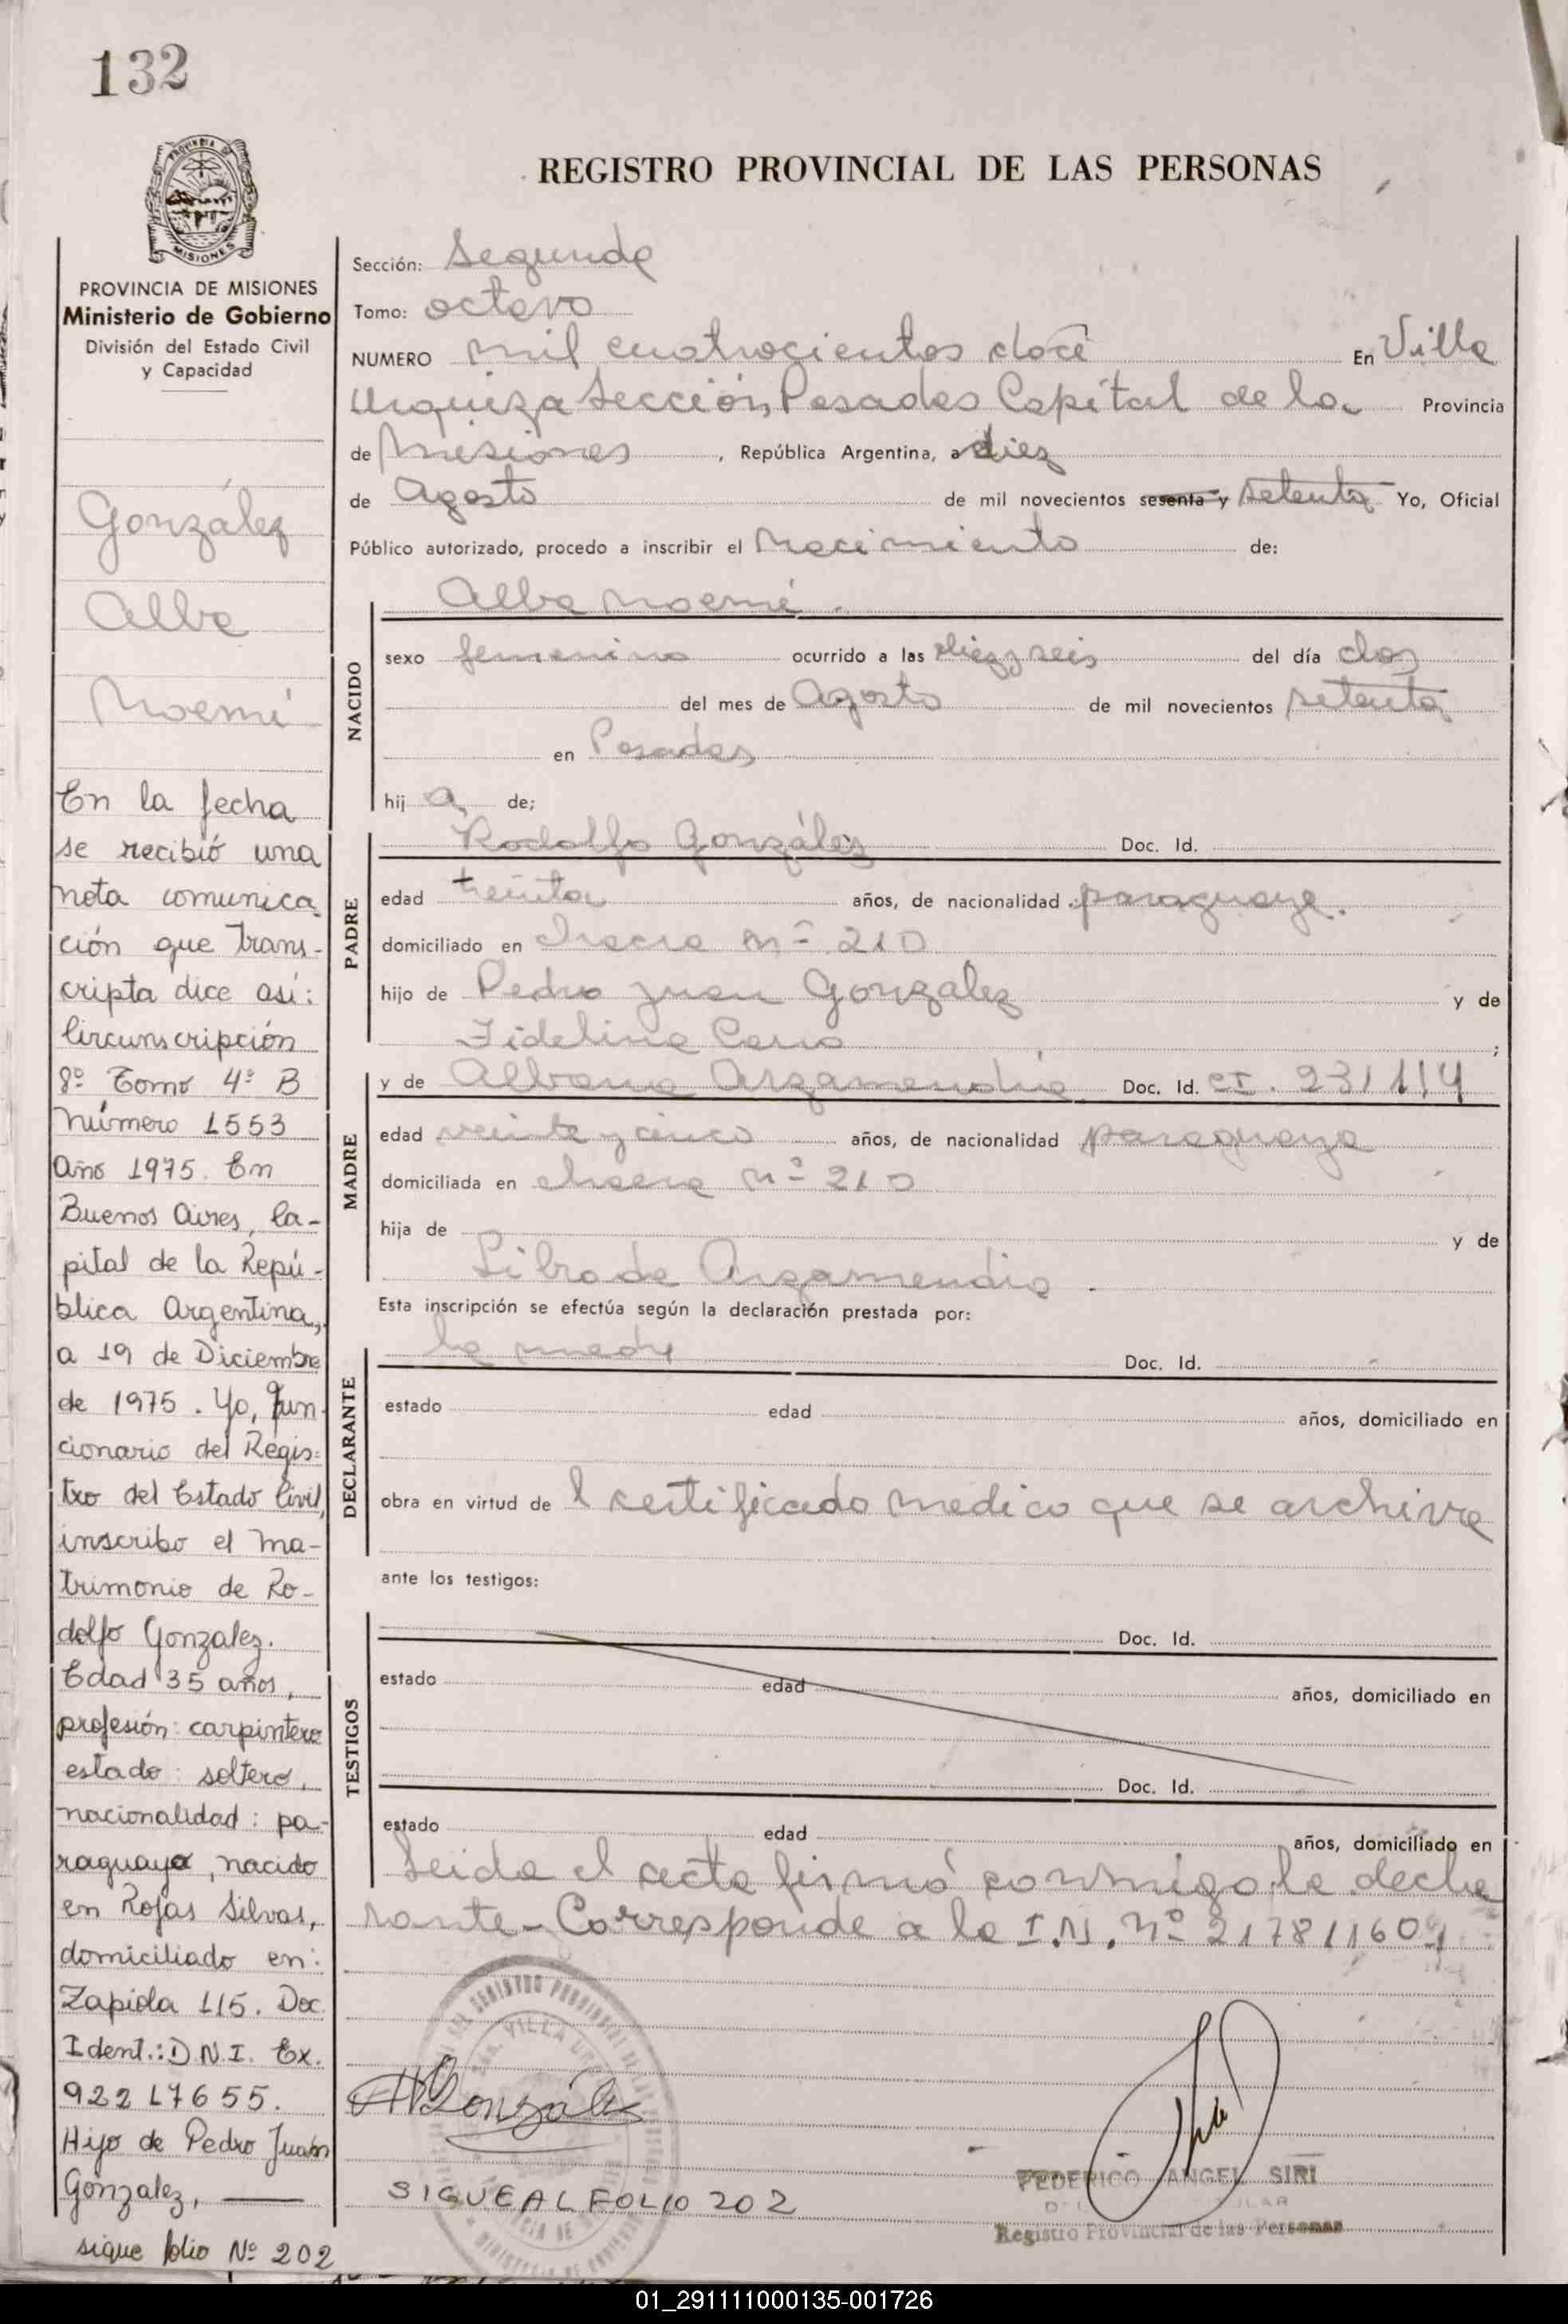 132
REGISTRO PROVINCIAL DE LAS PERSONAS
PROVINCIA DE MISIONES
Ministerio de Gobierno
División del Estado Civil
y Capacidad
González
Alba
Noemí
En la fecha
se recibió una
nota comunica
ción que trans-
cripta dice así:
Circunscripción
8º Tomo 4º B
Número 1553
Año 1975. En
Buenos Aires, Ca-
pital de la Repú-
blica Argentina,
a 19 de Diciembre
de 1975. Yo, Fun-
cionario del Regis-
tro del Estado Civil,
inscribo el Ma-
trimonio de Ro-
dolfo Gonzalez.
Edad 35 años,
profesión: carpintero
estado: soltero,
nacionalidad: pa-
raguaya, nacido
en Rojas Silvas,
domiciliado en:
Zapiola 115. Doc.
Ident.: D.N.I. Ex.
92217655.
Hijo de Pedro Juan
Gonzalez,
sigue folio Nº 202
Sección: Segunda
Tomo: octavo
NUMERO mil cuatrocientos doce En Villa
Urquiza Sección Posadas Capital de la Provincia
de Misiones, República Argentina, a diez
de Agosto de mil novecientos sesenta y setenta Yo, Oficial
Público autorizado, procedo a inscribir el Nacimiento de:
Alba Noemí.
NACIDO
sexo femenino ocurrido a las diez y seis del día dos
del mes de Agosto de mil novecientos setenta
en Posadas
hij a de;
Rodolfo González Doc. Id.
PADRE
edad treinta años, de nacionalidad paraguaya.
domiciliado en chacra nº 210
hijo de Pedro Juan Gonzalez y de
Fidelina ;
y de Albana Argamendia Doc. Id. CI. 231114
MADRE
edad veinte y cinco años, de nacionalidad paraguaya
domiciliada en chacra nº 210
hija de y de
Librada Argamendia.
Esta inscripción se efectúa según la declaración prestada por:
la madre Doc. Id.
DECLARANTE
estado edad años, domiciliado en
obra en virtud de l certificado medico que se archiva
ante los testigos:
TESTIGOS
Doc. Id.
estado edad años, domiciliado en
Doc. Id.
estado edad años, domiciliado en
Leida el acta firmó conmigo la decla
rante - Corresponde a la I.N. nº 21781160
González
SIGUE AL FOLIO 202
FEDERICO ANGEL SIRI
Registro Provincial de las Personas
01_291111000135-001726